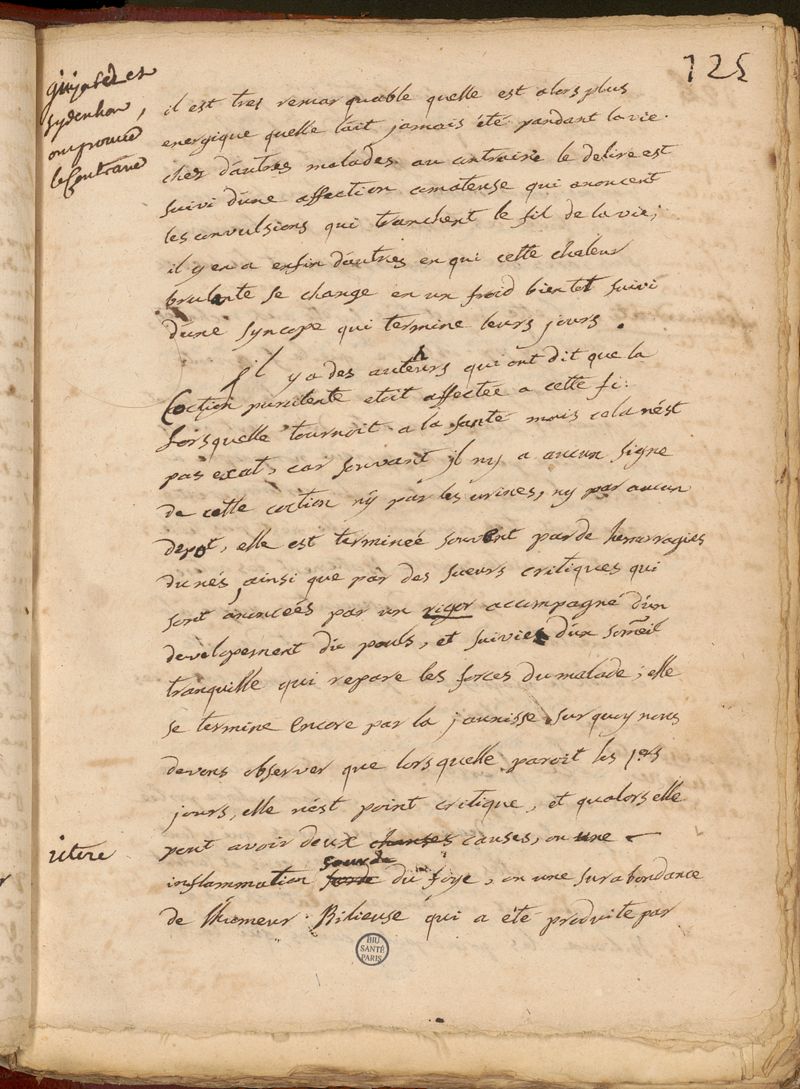 125
Sydenham,
ont prouvé
le Contraire
il est tres remarquable quelle est alors plus
energique quelle lait jamais été pandant la vie.
chez d'autres malades au contraire le delire est
suivi d'une affection comateuse qui anoncent
les convulsions qui tranchent le fil de la vie;
il y en a enfin d'autres en qui cette chaleur
brulante se change en un froid bientot suivi
d'une syncope qui termine leurs jours.
Il y a des auteurs qui ont dit que la
Coction purulente etoit affectée a cette fi:
lorsquelle tournoit a la santé mais cela n'est
pas exat, car souvant il ny a aucun signe
de cette coction ny par les urines, ny par aucun
depot, elle est terminée souvent par de hemorragies
du nés, ainsi que par des sueurs critiques qui
sont anoncées par un rigor accompagné d'un
developement du pouls, et suivies d'un someil
tranquille qui repare les forces du malade; elle
se termine encore par la jaunisse sur quoy nous
devons observer que lorsquelle paroit les 1ers
jours, elle n'est point critique, et qualors elle
ictere
peut avoir deux causes, ou une
inflammation sourde du foye, ou une surabondance
de l'humeur Bilieuse qui a été produite par
BIU
SANTÉ
PARIS